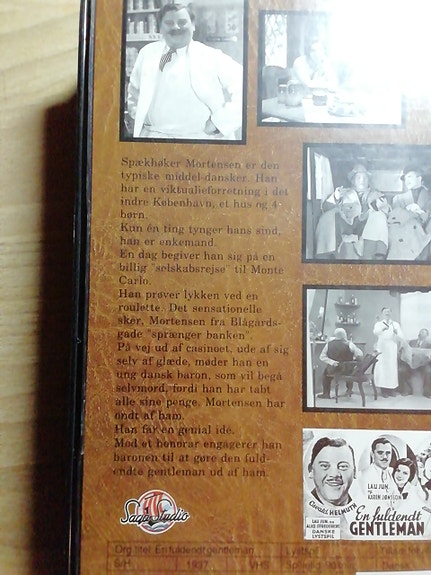 Spækhøker Mortensen er den
typiske middel-dansker. Han
har en viktualieforretning i det
indre København, et hus og 4
børn.
Kun én ting tynger hans sind,
han er enkemand.
En dag begiver han sig på en
billig "selskabsrejse" til Monte
Carlo.
Han prøver lykken ved en
roulette. Det sensationelle
sker, Mortensen fra Blågards-
gade "sprænger banken".
På vej ud af casinoet, ude af sig
selv af glæde, møder han en
ung dansk baron, som vil begå
selvmord, fordi han har tabt
alle sine penge. Mortensen har
ondt af ham.
Han får en genial ide.
Mod et honorar engagerer han
baronen til at gøre den fuld-
endte gentleman ud af ham.
Osvald HELMUTH
LAU JUN.
KAREN JØNSSON
LAU JUN. og
DANSKE
LYSTSPIL
En fuldendt
GENTLEMAN
Saga studio
Org titel: En fuldendt gentleman
Lystspil
S/H
1937
VHS